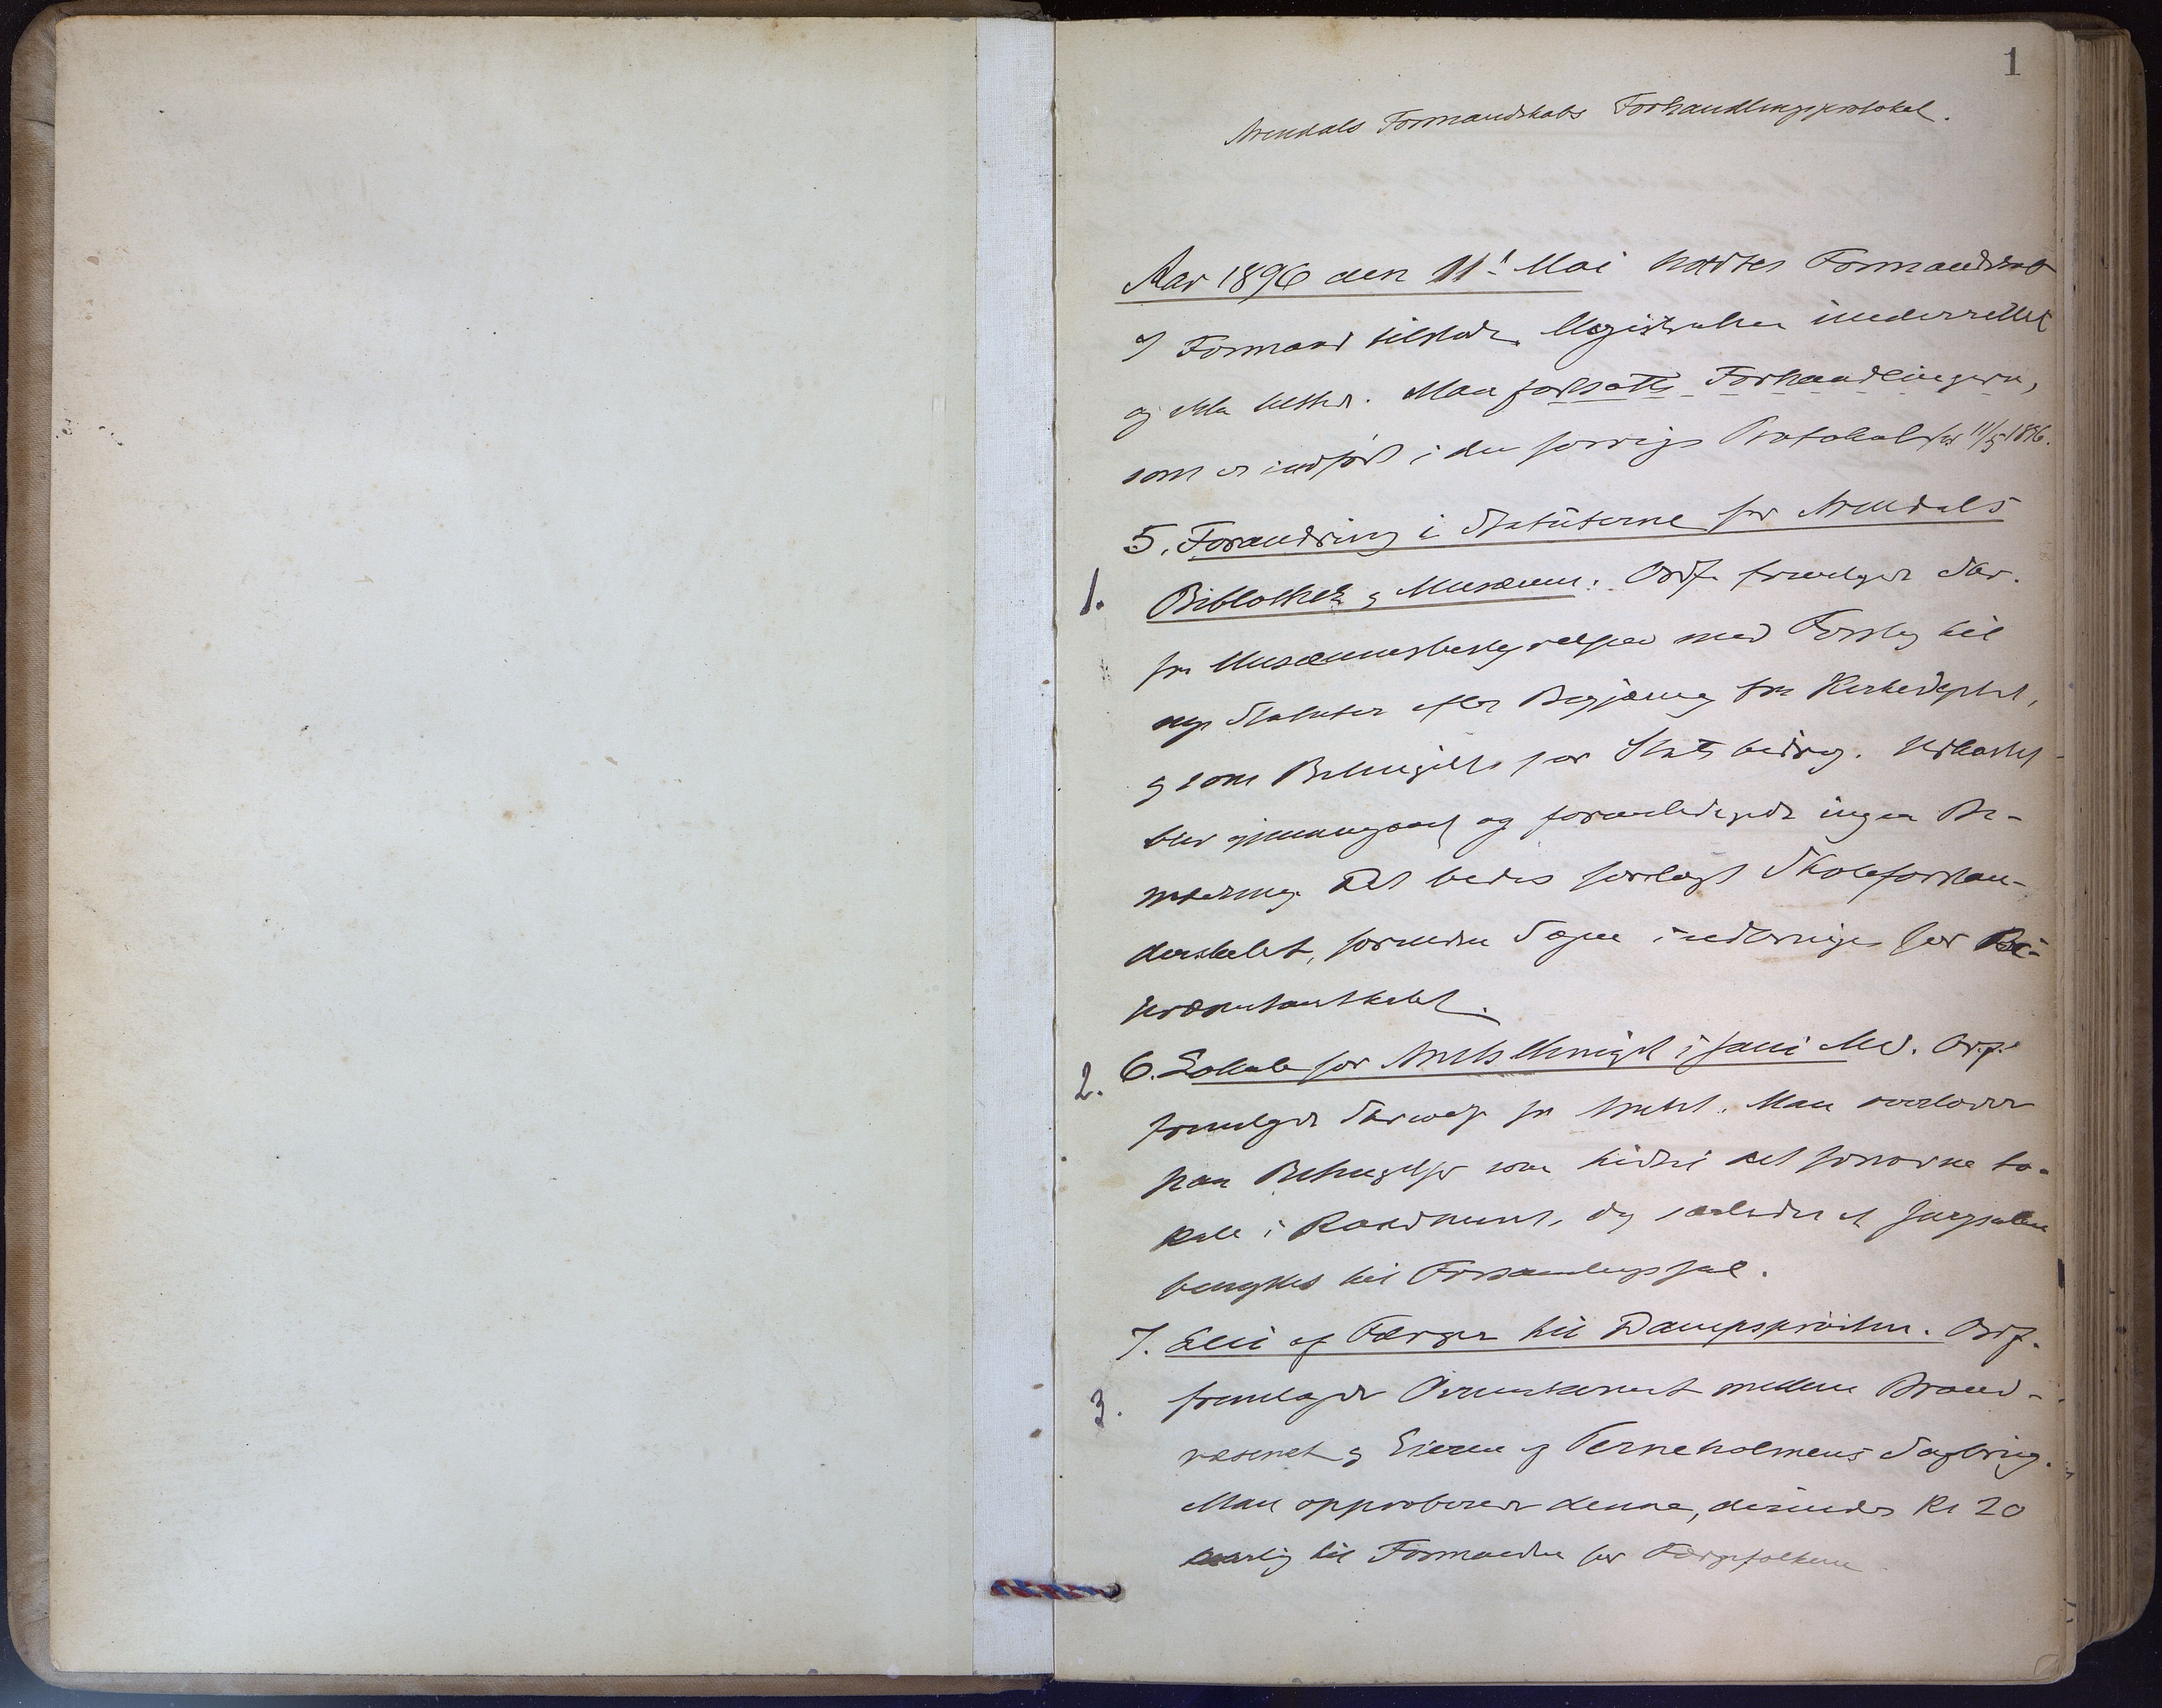 1
Arendals Formandskabs Forhandlingsprotokol.
Aar 1896 den 11t Mai holdtes Formandskab
7 Formænd tilstede. Magistraten underrettet
og ikke tilstede. Man fortsatte Forhandlingerne,
som er indført i den forrige Protokol for 11/5 1896.
5. Forandring i Statuterne for Arendals
1. Bibliothek & Musæum. Ordf. fremlagde Skr.
fra Musæumsbestyrelsen med Forslag til
nye Statuter efter Begjæring fra Kirkedeptet,
og som Betingelse for Statsbidrag. Udkastet
blev gjennemgaaet og foranledigede ingen Be-
mærkning. Det bedes forelagt Skoleforstan-
derskabet, forinden Sagen indbringes for Re-
præsentantskabet.
2. 6. Lokale for Amtsthinget i Juni Md. Ordf.
fremlagde Skrivelse fra Amtet. Man overlader
paa Betingelser som hidtil det fornødne Lo-
kale i Raadhuset, dog saaledes at
benyttes til Forsamlingssal.
7. Leie af Færger til Dampsprøiten. Ordf.
3. fremlagde Overenskomst mellem Brand-
væsenet & Eierne af Terneholmens Sagbrug.
Man approberer denne, derunder Kr 20
aarlig til Formanden for Færgefolkene